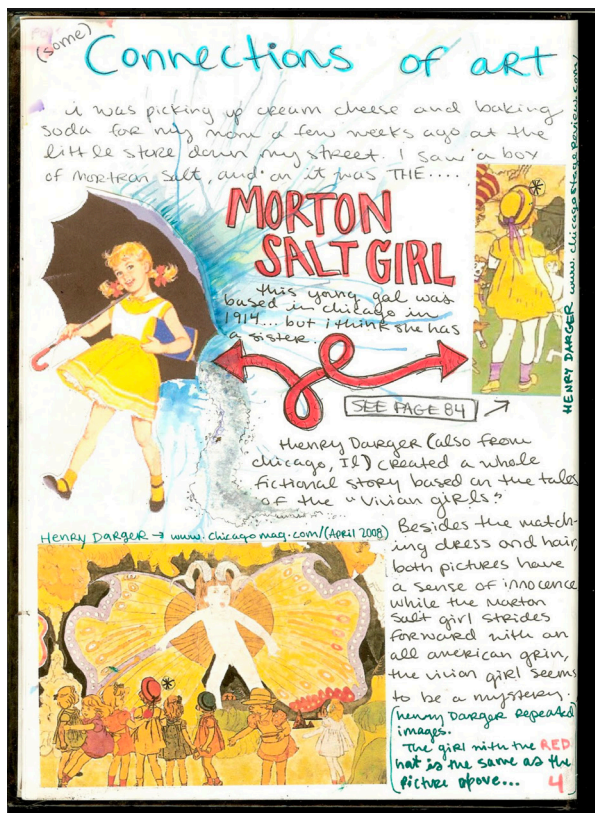 (some)
Connections of art
i was picking up cream cheese and baking
soda for my mom a few weeks ago at the
little store down my street. I saw a box
of mortran salt, and on it was THE....
MORTON
SALT GIRL
this young gal was
based in chicago in
1914... but i think she has
a sister.
SEE PAGE 84
HENRY DARGER www.chicagostagereview.com/
Henry Darger (also from
chicago, Il) created a whole
fictional story based on the tales
of the "vivian girls."
Henry Darger → www.chicagomag.com/(April 2008)
Besides the match-
ing dress and hair,
both pictures have
a sense of innocence
while the Morton
Salt girl strides
forward with an
all american grin,
the vivian girl seems
to be a mystery.
(henry Darger repeated
images.
The girl with the RED
hat is the same as the
picture above...
4